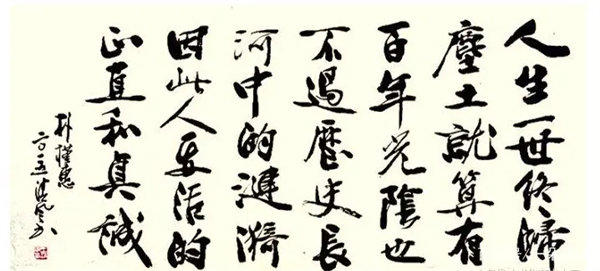 人生一世終歸
塵土就算有
百年光陰也
不過歷史長
河中的漣漪
因此人要活的
正直和真誠
朴槿惠